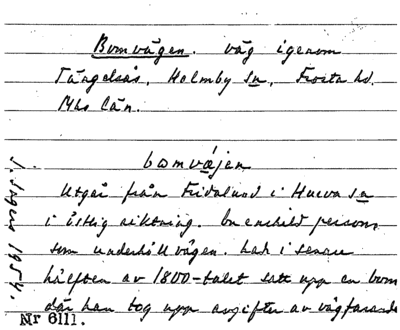 Bomvägen. väg igenom
Tängelsås, Holmby sn, Frosta hd.
Mhs län.
bomväjen
Utgår från Fridalund i Hurva sn
i östlig riktning. En enskild person
som underhöll vägen. had i senare
hälften av 1800-talet satt upp en bom
där han tog upp avgifter av vägfarande
1954.
Nr 6111.